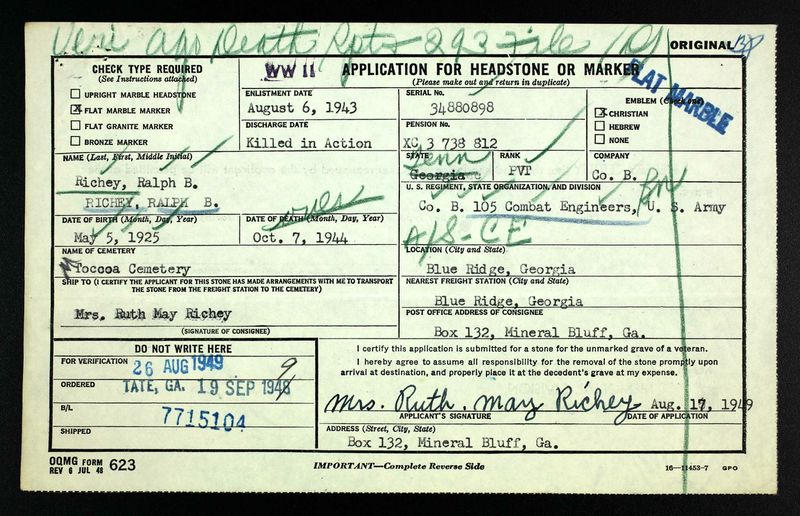 Veri Ago Death Rpts 293 File
ORIGINAL
CHECK TYPE REQUIRED
(See Instructions attached)
UPRIGHT MARBLE HEADSTONE
X FLAT MARBLE MARKER
FLAT GRANITE MARKER
BRONZE MARKER
WW II
APPLICATION FOR HEADSTONE OR MARKER
(Please make out and return in duplicate)
ENLISTMENT DATE
August 6, 1943
DISCHARGE DATE
Killed in Action
SERIAL No.
34880898
PENSION No.
XC 3 738 812
EMBLEM (Check one)
X CHRISTIAN
HEBREW
NONE
FLAT MARBLE
NAME (Last, First, Middle Initial)
Richey, Ralph B.
RICHEY, RALPH B.
STATE
Tenn
Georgia
RANK
PVT
COMPANY
Co. B.
U. S. REGIMENT, STATE ORGANIZATION, AND DIVISION
Co. B. 105 Combat Engineers, U. S. Army
A/S-CE
DATE OF BIRTH (Month, Day, Year)
May 5, 1925
DATE OF DEATH (Month, Day, Year)
Oct. 7, 1944
NAME OF CEMETERY
Toccoa Cemetery
LOCATION (City and State)
Blue Ridge, Georgia
SHIP TO (I CERTIFY THE APPLICANT FOR THIS STONE HAS MADE ARRANGEMENTS WITH ME TO TRANSPORT
THE STONE FROM THE FREIGHT STATION TO THE CEMETERY)
Mrs. Ruth May Richey
(SIGNATURE OF CONSIGNEE)
NEAREST FREIGHT STATION (City and State)
Blue Ridge, Georgia
POST OFFICE ADDRESS OF CONSIGNEE
Box 132, Mineral Bluff, Ga.
DO NOT WRITE HERE
FOR VERIFICATION
26 AUG 1949
ORDERED
TATE, GA. 19 SEP 1948 9
B/L
7715104
SHIPPED
I certify this application is submitted for a stone for the unmarked grave of a veteran.
I hereby agree to assume all responsibility for the removal of the stone promptly upon
arrival at destination, and properly place it at the decedent's grave at my expense.
Mrs. Ruth. May Richey Aug. 17, 1949
APPLICANT'S SIGNATURE
DATE OF APPLICATION
ADDRESS (Street, City, State)
Box 132, Mineral Bluff, Ga.
OQMG FORM
REV 6 JUL 48
623
IMPORTANT—Complete Reverse Side
16—11453-7 GPO